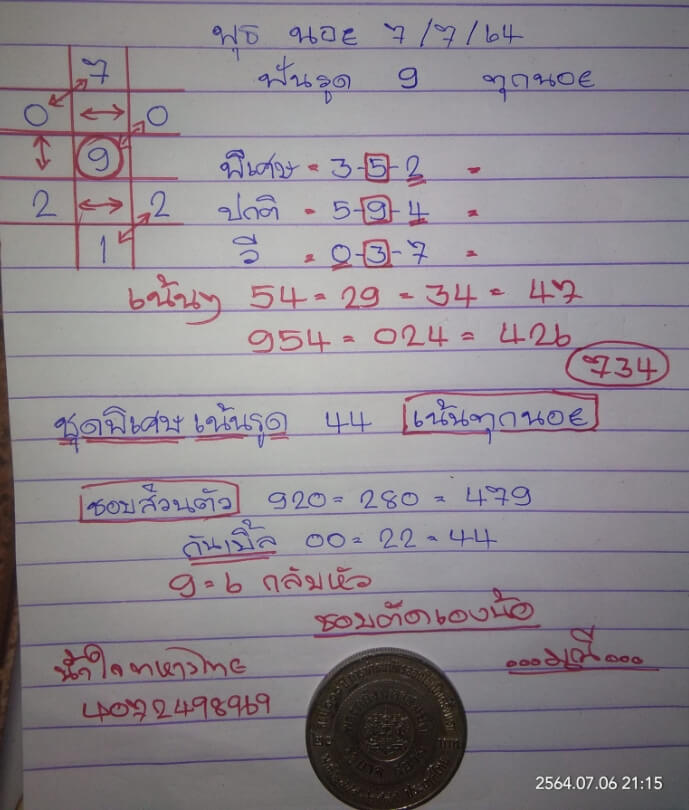 พุธ นอย 7/7/64
7
ฟันรูด 9 ทุกนอย
0 0
9
พิเศษ = 3-5-2 =
2 2
ปกติ = 5-9-4 =
1
วี = 0-3-7 =
เน้นๆ 54 = 29 = 34 = 47
954 = 024 = 426
734
ชุดพิเศษ เน้นรูด 44 เน้นทุกนอย
ชอบส่วนตัว 920 = 280 = 479
กันเบิ้ล 00 = 22 = 44
9 = 6 กลับหัว
ชอบตัดเองน้อ
น้ำใจทหารไทย ...มณี...
4072498969
2564.07.06 21:15